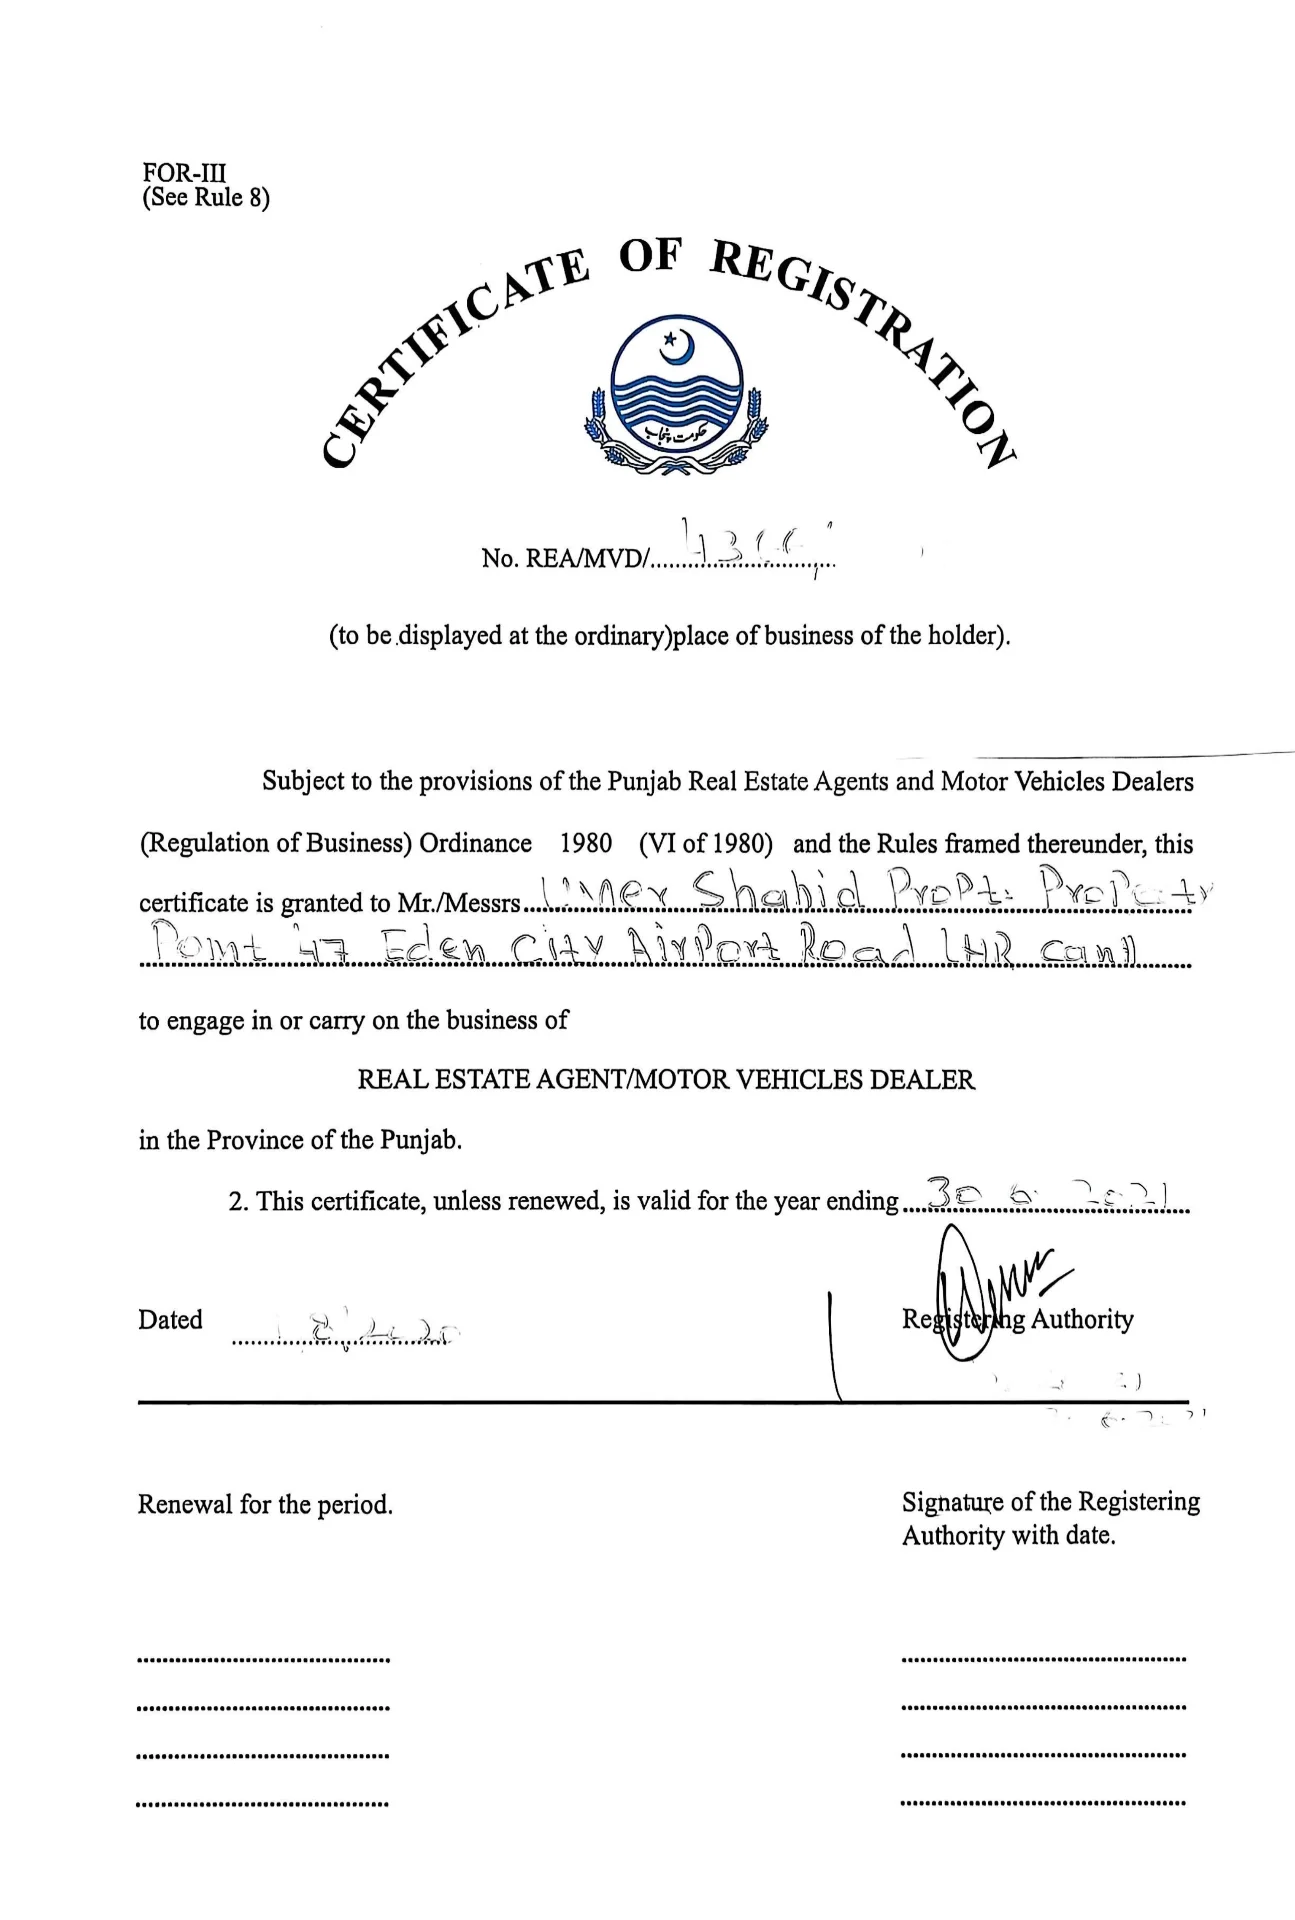 FOR-III
(See Rule 8)
CERTIFICATE OF REGISTRATION
حکومت پنجاب
No. REA/MVD/
(to be displayed at the ordinary)place of business of the holder).
Subject to the provisions of the Punjab Real Estate Agents and Motor Vehicles Dealers
(Regulation of Business) Ordinance 1980 (VI of 1980) and the Rules framed thereunder, this
certificate is granted to Mr./Messrs Umer Shahid Propt: Property
Point 47 Eden City Airport Road LHR Cantt
to engage in or carry on the business of
REAL ESTATE AGENT/MOTOR VEHICLES DEALER
in the Province of the Punjab.
2. This certificate, unless renewed, is valid for the year ending 30 6 2021
Dated
Registering Authority
Renewal for the period.
Signature of the Registering
Authority with date.